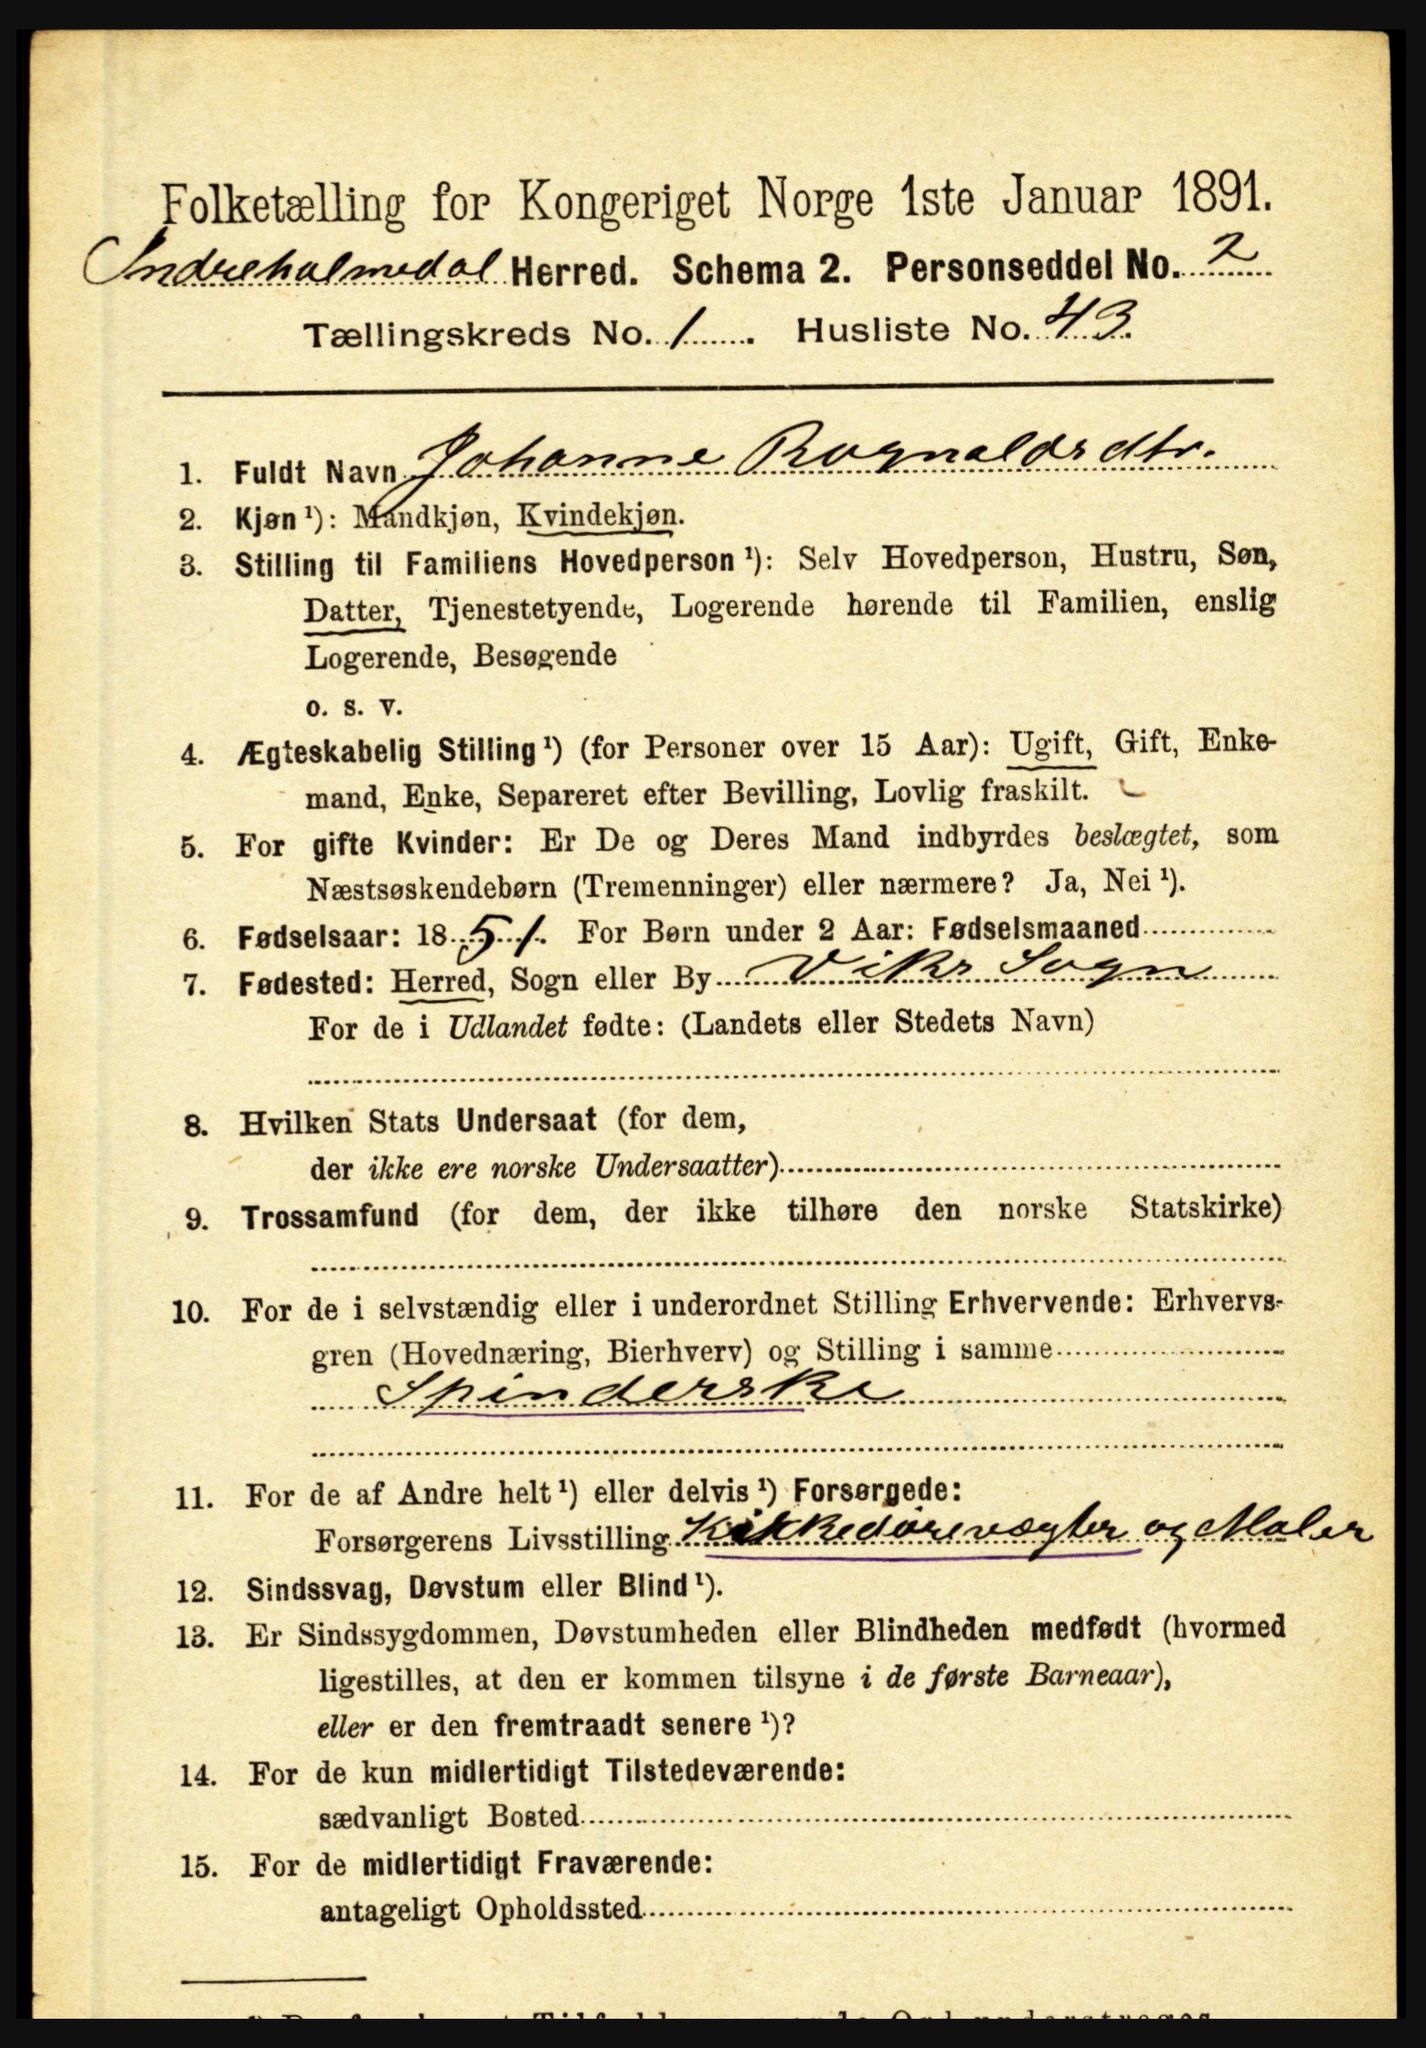 Folketælling for Kongeriget Norge 1ste Januar 1891.
Indreholmedal Herred. Schema 2. Personseddel No. 2
Tællingskreds No. 1. Husliste No. 43.
1. Fuldt Navn Johanne Rognaldsdtr.
2. Kjøn ¹): Mandkjøn, Kvindekjøn.
3. Stilling til Familiens Hovedperson ¹): Selv Hovedperson, Hustru, Søn,
Datter, Tjenestetyende, Logerende hørende til Familien, enslig
Logerende, Besøgende
o. s. v.
4. Ægteskabelig Stilling ¹) (for Personer over 15 Aar): Ugift, Gift, Enke-
mand, Enke, Separeret efter Bevilling, Lovlig fraskilt.
5. For gifte Kvinder: Er De og Deres Mand indbyrdes beslægtet, som
Næstsøskendebørn (Tremenninger) eller nærmere? Ja, Nei ¹).
6. Fødselsaar: 1851. For Børn under 2 Aar: Fødselsmaaned
7. Fødested: Herred, Sogn eller By Viks Sogn
For de i Udlandet fødte: (Landets eller Stedets Navn)
8. Hvilken Stats Undersaat (for dem,
der ikke ere norske Undersaatter)
9. Trossamfund (for dem, der ikke tilhøre den norske Statskirke)
10. For de i selvstændig eller i underordnet Stilling Erhvervende: Erhvervs-
gren (Hovednæring, Bierhverv) og Stilling i samme
Spinderske
11. For de af Andre helt ¹) eller delvis ¹) Forsørgede:
Forsørgerens Livsstilling Kikkedørevægter og Maler
12. Sindssvag, Døvstum eller Blind ¹).
13. Er Sindssygdommen, Døvstumheden eller Blindheden medfødt (hvormed
ligestilles, at den er kommen tilsyne i de første Barneaar),
eller er den fremtraadt senere ¹)?
14. For de kun midlertidigt Tilstedeværende:
sædvanligt Bosted
15. For de midlertidigt Fraværende:
antageligt Opholdssted